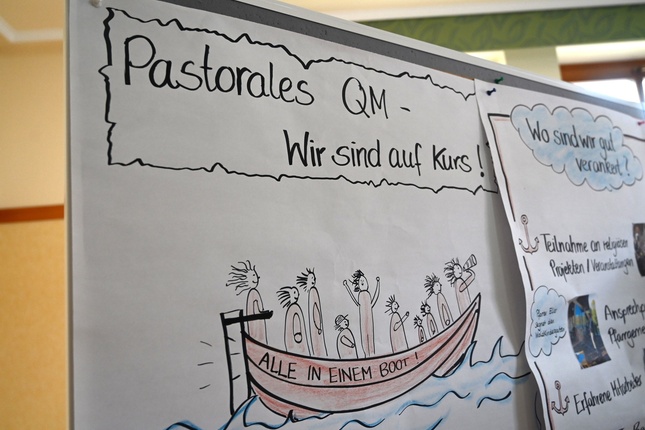 Pastorales QM -
Wir sind auf Kurs!
ALLE IN EINEM BOOT!
Wo sind wir gut
verankert?
Teilnahme an religiöser
Projekten / Veranstaltungen
Erfahrene Mitarbeiter